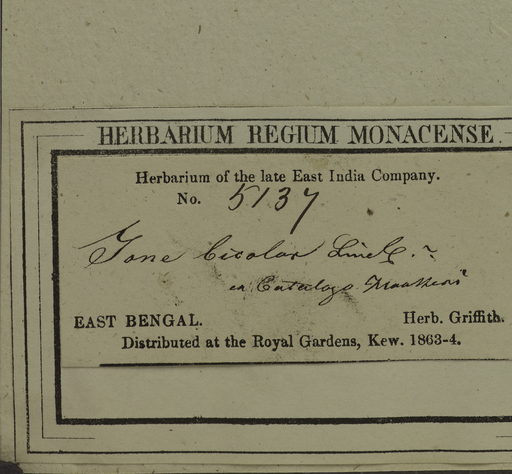 HERBARIUM REGIUM MONACENSE.
Herbarium of the late East India Company.
No. 5137
Gone bicolor Lindl.
ex Catalogo Hookeri
EAST BENGAL. Herb. Griffith.
Distributed at the Royal Gardens, Kew. 1863-4.